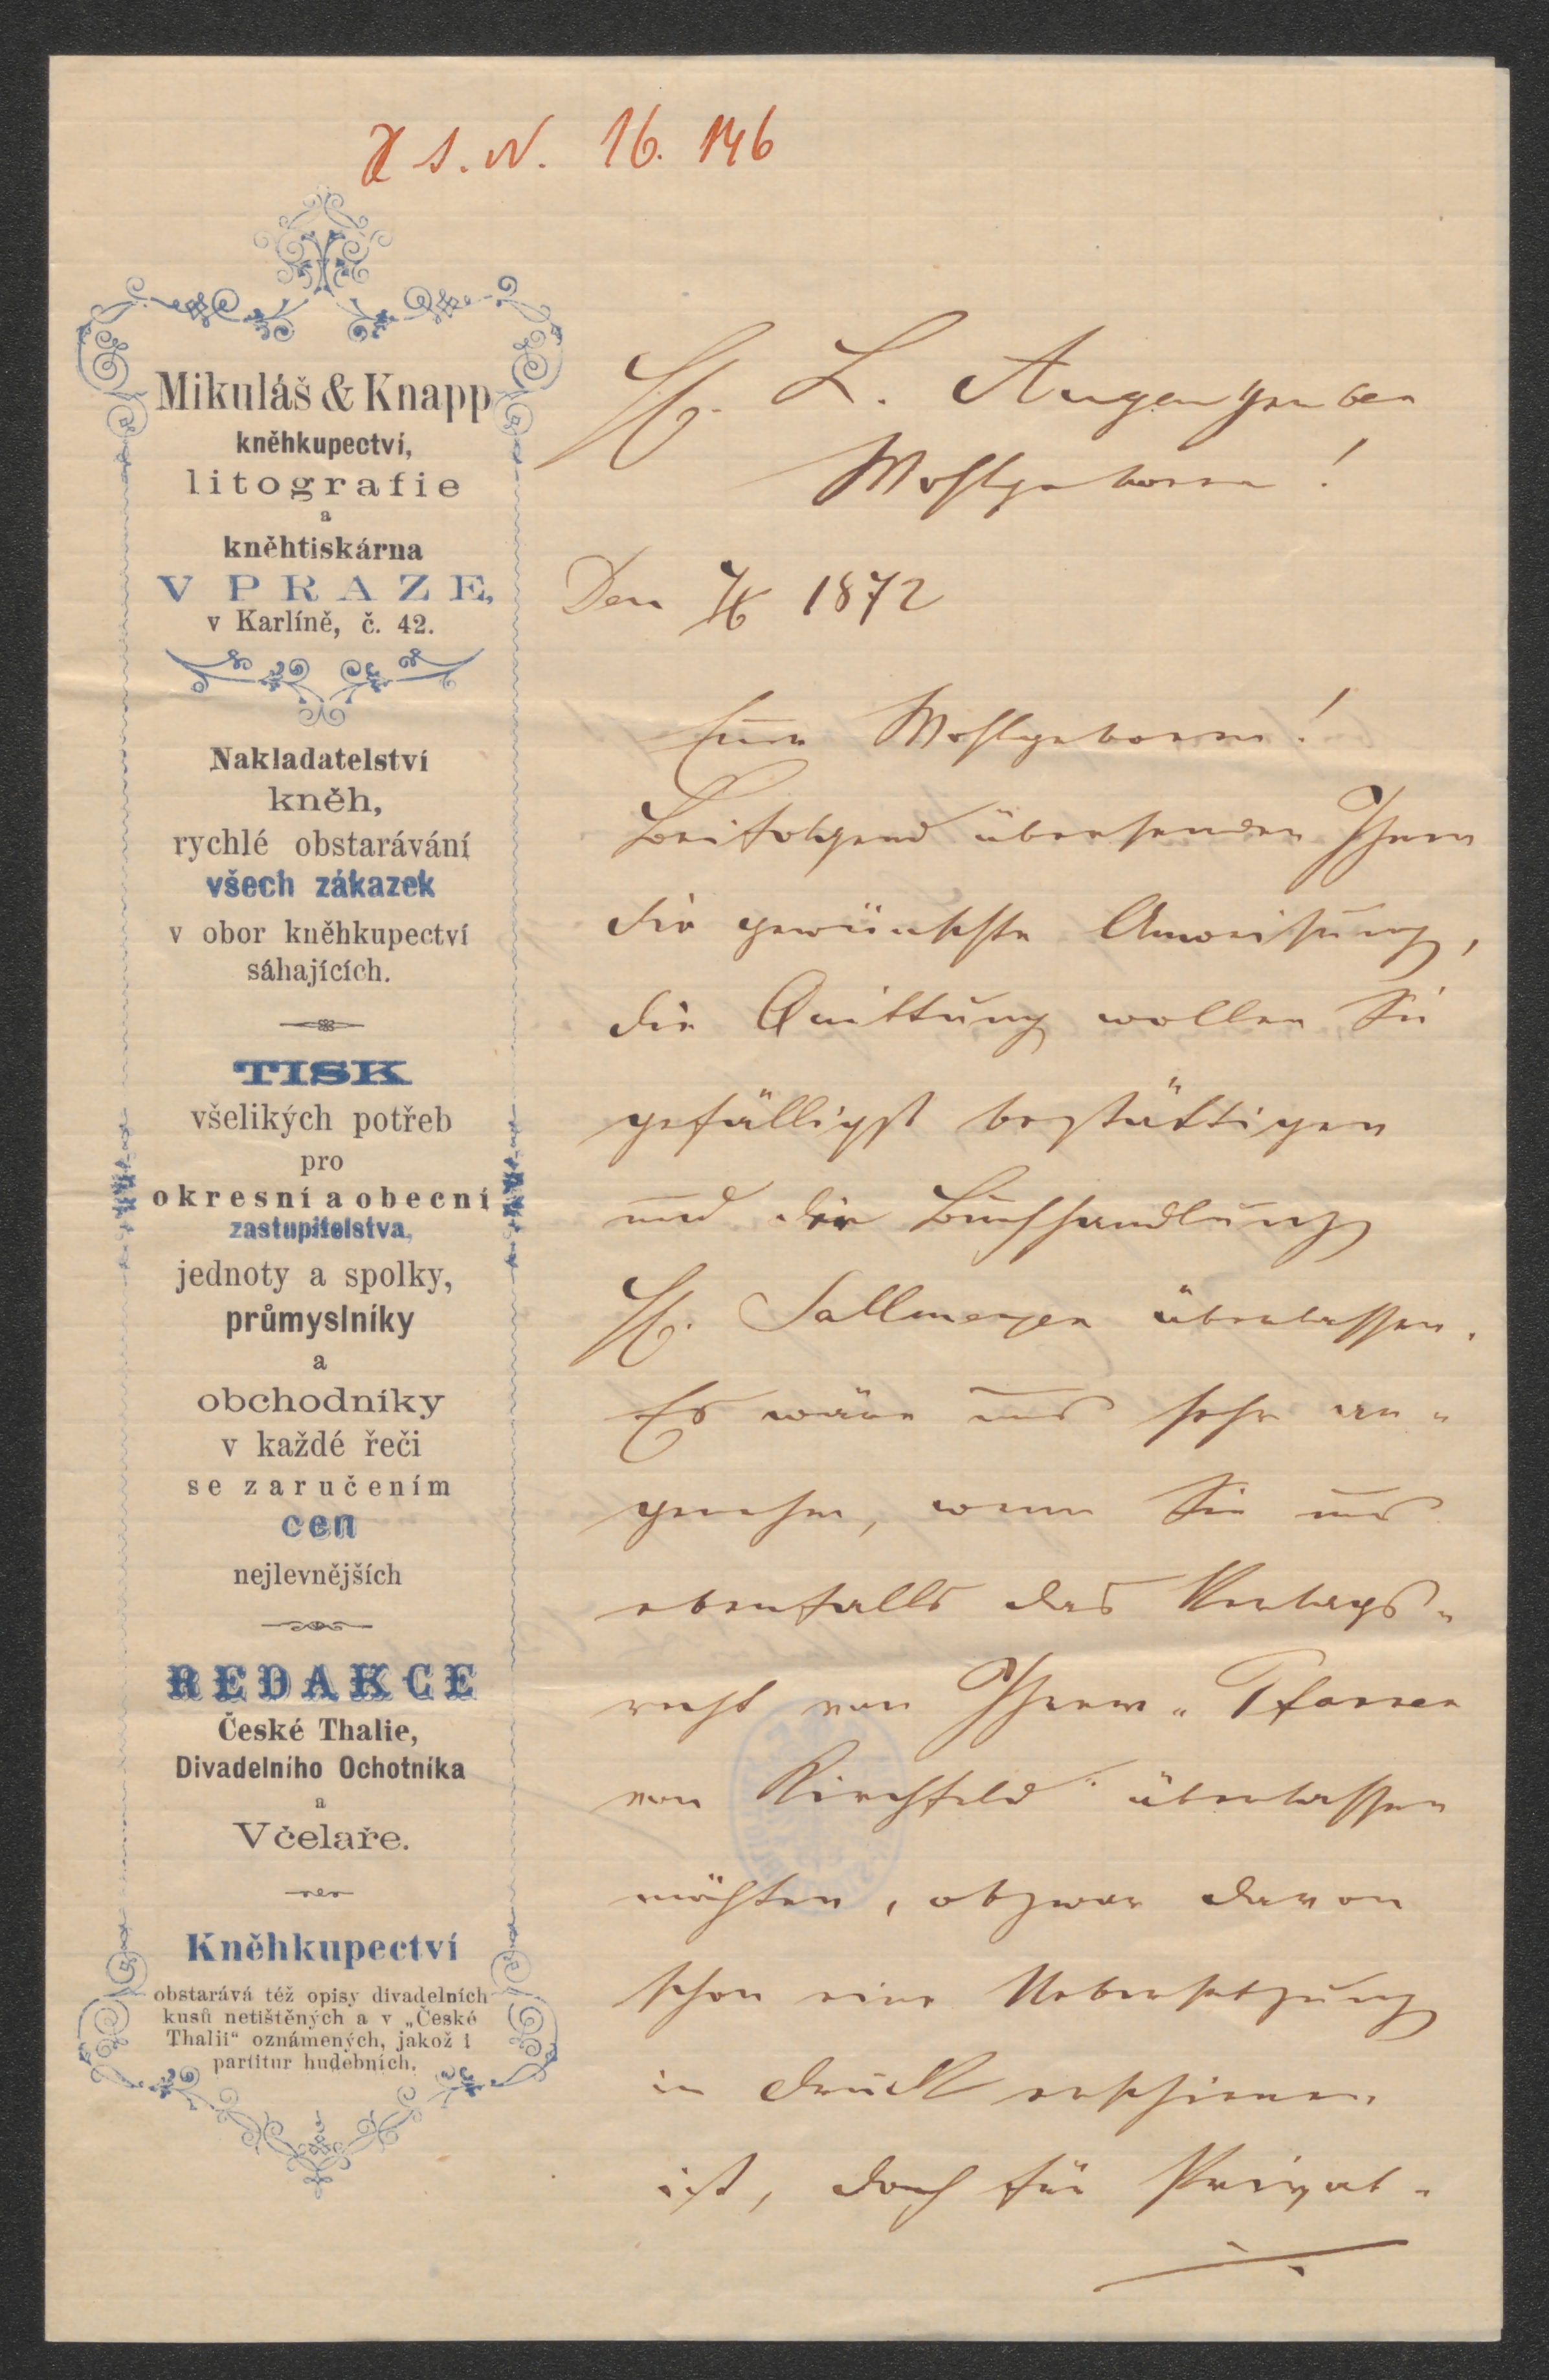 H I. N. 16. 146
Mikuláš & Knapp
kněhkupectví,
litografie
a
kněhtiskárna
V PRAZE,
v Karlíně, č. 42.
Nakladatelství
kněh,
rychlé obstarávání
všech zákazek
v obor kněhkupectví
sáhajících.
TISK
všelikých potřeb
pro
okresní a obecní
zastupitelstva,
jednoty a spolky,
průmyslníky
a
obchodníky
v každé řeči
se zaručením
cen
nejlevnějších
REDAKCE
České Thalie,
Divadelního Ochotníka
a
Včelaře.
Kněhkupectví
obstarává též opisy divadelních
kusů netištěných a v „České
Thalii“ oznámených, jakož i
partitur hudebních.
H. L. Anzengruber
Wohlgeboren!
Den 1872
Euer Wohlgeboren!
Beifolgend übersenden Ihnen
die gewünschte Anweisung,
die Quittung wollen Sie
gefälligst bestättigen
und der Buchhandlung
H. Sallmayer überlassen.
Es wäre uns sehr an-
genehm, wenn Sie uns
ebenfalls das Verlags-
recht von Ihrem „Pfarrer
von Kirchfeld“ überlassen
möchten, obzwar davon
schon eine Uebersetzung
in Druck erschienen
ist, doch für Privat-